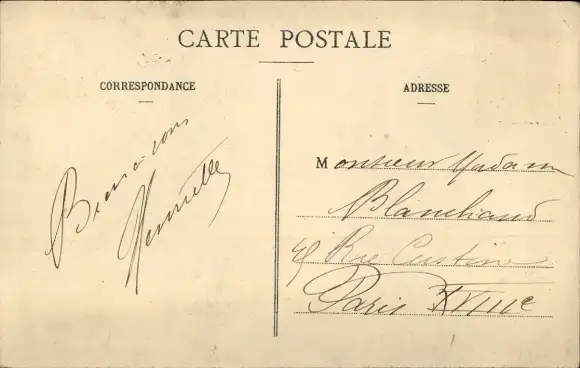 CARTE POSTALE
CORRESPONDANCE
ADRESSE
Bien à vous
Henriette
Monsieur Madam
Blanchard
Rue Custine
Paris XVIIIe